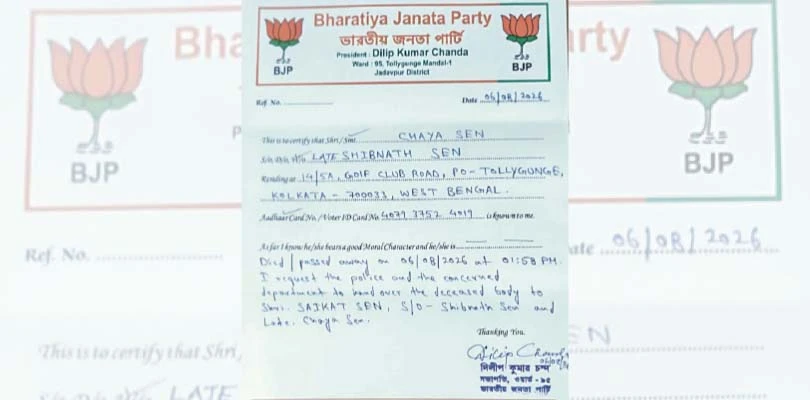 Bharatiya Janata Party
ভারতীয় জনতা পার্টি
President : Dilip Kumar Chanda
Ward : 95, Tollygunge Mandal-1
Jadavpur District
BJP
BJP
Ref. No. ....................
Date 06/08/2026
This is to certify that Shri / Smt. CHAYA SEN
LATE SHIBNATH SEN
Residing at 14/5A, GOLF CLUB ROAD, PO - TOLLYGUNGE,
KOLKATA - 700033, WEST BENGAL.
Aadhaar Card No. / Voter I/D Card No. 4079 3752 4019 is known to me.
As far I know he/she bears a good Moral Character and he/she is
Died / passed away on 06/08/2026 at 01:58 PM.
I request the police and the concerned
department to hand over the deceased body to
Shri. SAIKAT SEN, S/O - Shibnath Sen and
Late. Chaya Sen.
Thanking You.
Dilip Chanda
দিলীপ কুমার চন্দ
সভাপতি, ওয়ার্ড - ৯৫
ভারতীয় জনতা পার্টি
Bha
rty
BJP
BJP
Ref. No. ....................
ate 06/08/2026
This is to certify that Shri
EN
LATE